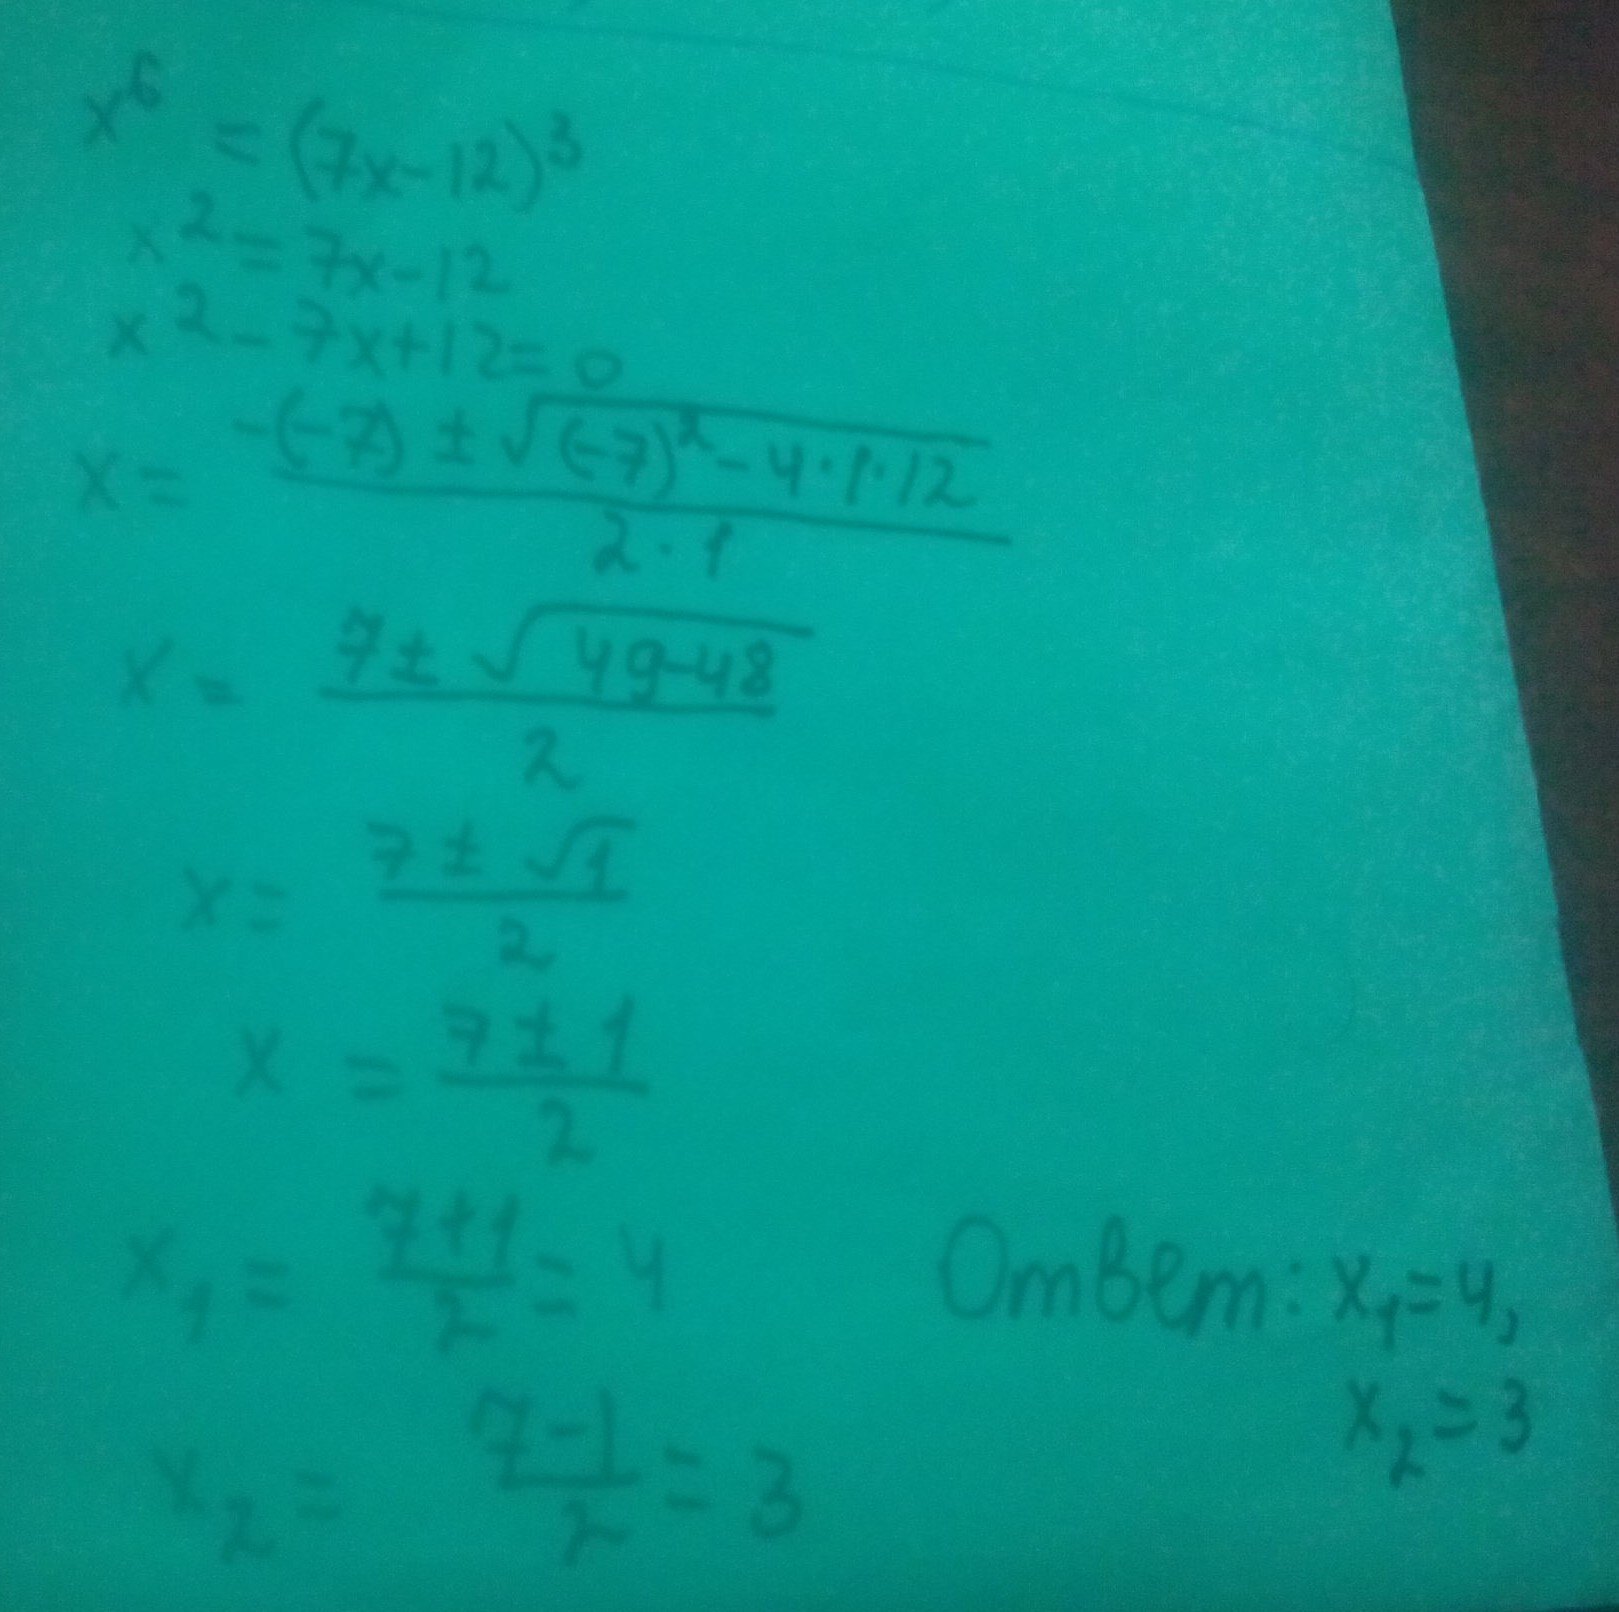 x⁶ = (7x-12)³
x² = 7x-12
x² - 7x+12=0
x = (-(-7) ± √((-7)² - 4·1·12)) / (2·1)
x = (7 ± √(49-48)) / 2
x = (7 ± √1) / 2
x = (7 ± 1) / 2
x₁ = (7+1) / 2 = 4
x₂ = (7-1) / 2 = 3
Ответ: x₁=4,
x₂=3